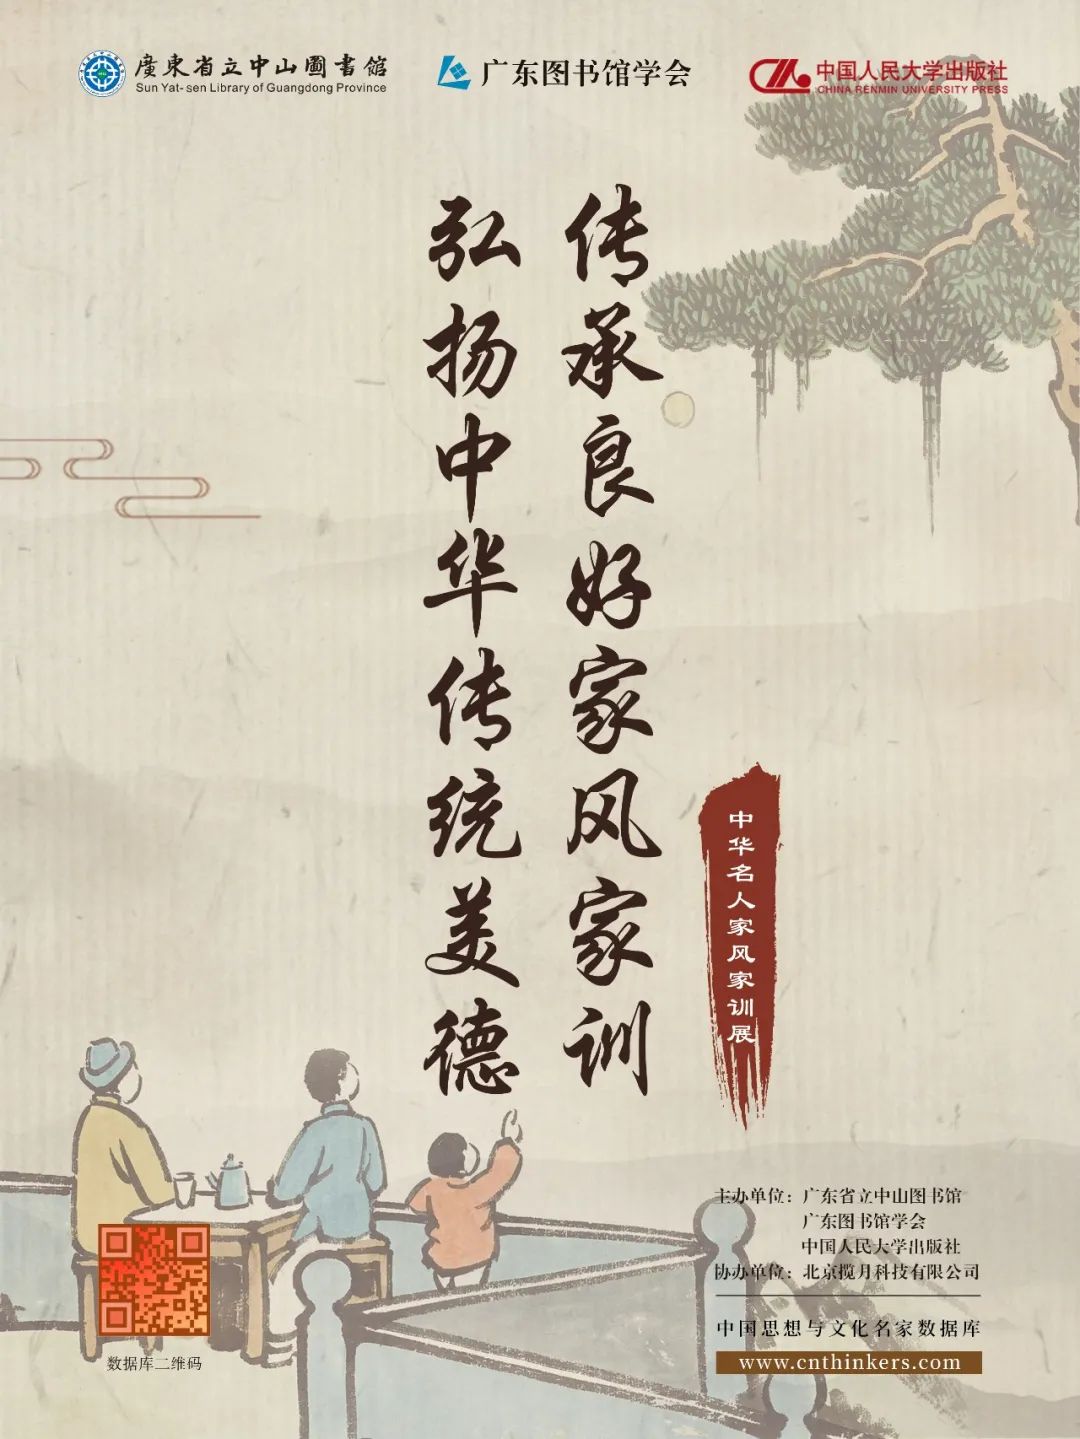 廣東省立中山圖書館
Sun Yat-sen Library of Guangdong Province
广东图书馆学会
中国人民大学出版社
CHINA RENMIN UNIVERSITY PRESS
传承良好家风家训
弘扬中华传统美德
中华名人家风家训展
主办单位：广东省立中山图书馆
广东图书馆学会
中国人民大学出版社
协办单位：北京揽月科技有限公司
中国思想与文化名家数据库
www.cnthinkers.com
数据库二维码